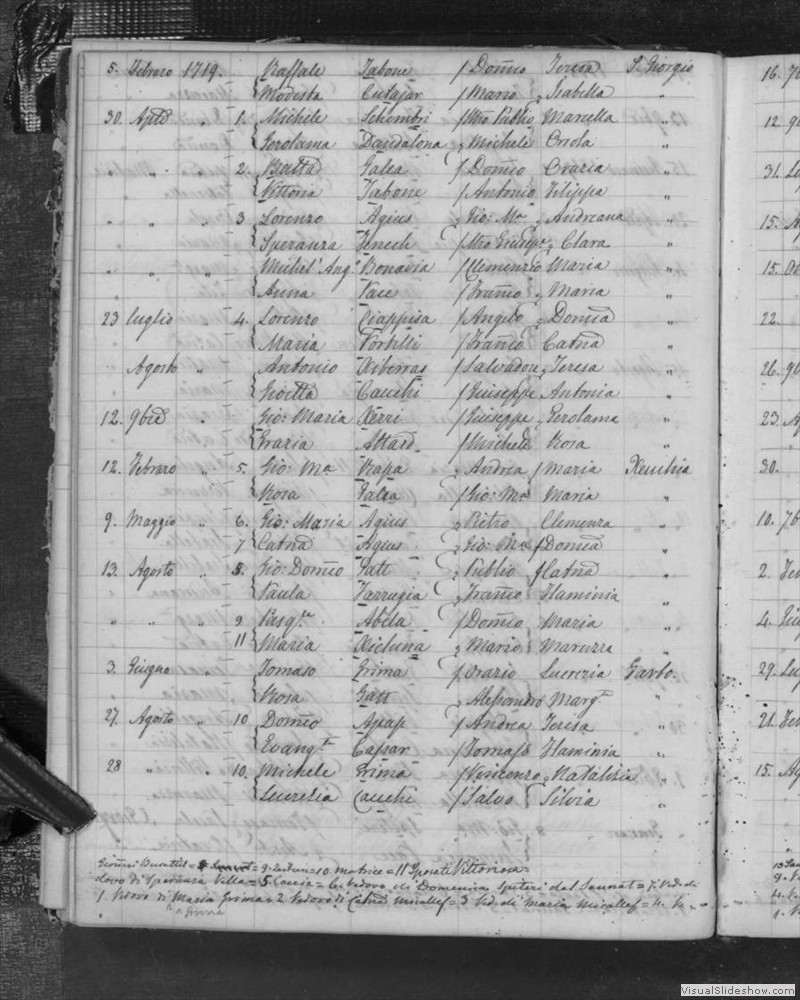 5. Febraro 1719. Raffaele Tabone f Dom̃co Teresa S. Giorgio
Modesta Cutajar f Mario „ Isabella „
30. Aplẽ „ 1. Michele Schembri f Mro Publio Marcella „
Gerolama Dandalona „ Michele Oriola „
„ „ „ 2. Batta Galea f Dom̃co Oraria „
Vittoria Tabone f Antonio Filippa „
„ „ „ 3 Lorenzo Agius „ Gio: Ma „ Andreana „
Speranza Zenech f Mro Giuseppe „ Clara „
„ „ „ Michel' Ango Bonavia f Clemenzo Maria „
Anna Pace f Franco „ Maria „
23 Luglio „ 4. Lorenzo Ciappisa f Angelo „ Domca „
Maria Portelli f Franco Catna „
Agosto „ Antonio Xiberras f Salvadore „ Teresa „
Gioella Cauchi f Giuseppe Antonia „
12. 9bre „ Gio: Maria Xerri f Giuseppe „ Gerolama „
Grazia Attard f Michele Rosa „
12. Febraro „ 5. Gio: Ma Rapa „ Andrea f Maria Xeuchia
Rosa Galea f Gio: Ma Maria „
9. Maggio „ 6. Gio: Maria Agius „ Pietro Clemenza „
7 Catna Agius „ Gio: Ma f Domca „
13. Agosto „ 8. Gio: Dom̃co Gatt „ Publio f Catna „
Paula Farrugia „ Franco Flaminia „
„ „ „ 9 Pasqle Abela f Dom̃co Maria „
11 Maria Xicluna „ Mario „ Maruzza „
3. Giugno „ Tomaso Grima f Orazio Lucrezia Garbo.
Rosa Gatt „ Alessandro Margta „
27. Agosto „ 10 Dom̃co Apap f Andrea Teresa „
Evangta Caspar f Tomaso Flaminia „
28 „ „ 10. Michele Grima f Vincenzo „ Natalizia „
Lucrezia Cauchi f Salvo Silvia „
matrice = 11 Sposati Vittoriosa =
dovo di Speranza Villa = 5. Caccia = 6. Vedovo di Domenica Spiteri dal Sannat = 7. Ved. di
1. Vedovo di Maria Grima = 2 Vedovo di Catna Micallef = 3 Ved. di Maria Micallef = 4. Ve
Grima
16.
12
31.
15.
15.
22.
26.
23.
30.
10.
2.
4.
29.
21.
15.
VisualSlideshow.com